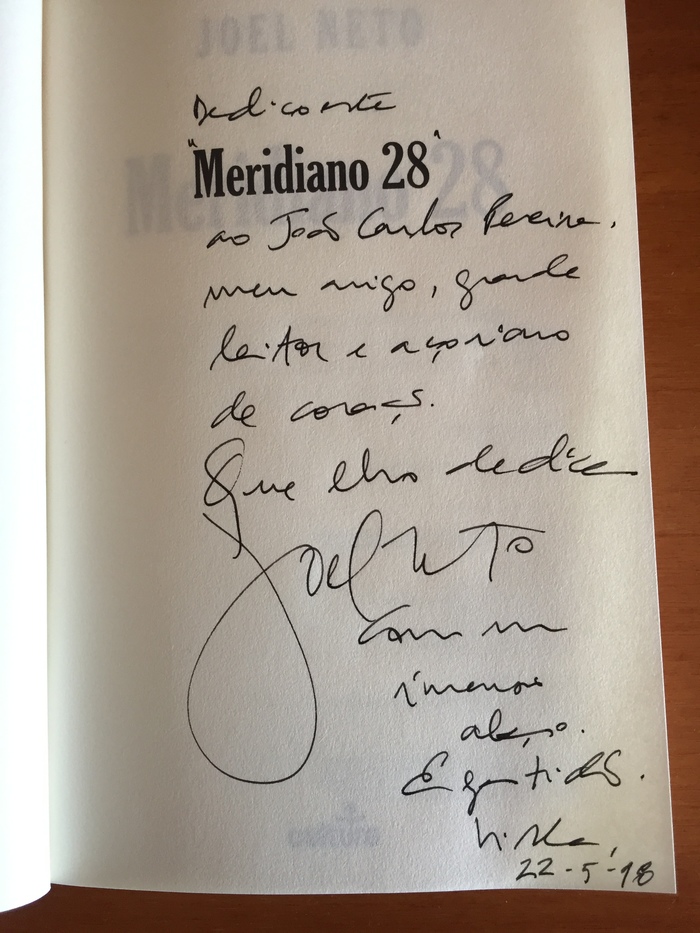 JOEL NETO
Dedico este
"Meridiano 28"
ao João Carlos Pereira,
meu amigo, grande
leitor e açoriano
de coração.
Que lho dedica
Joel Neto
com um
imenso
abraço.
E gratidão.
Lisboa,
22-5-18
cultura